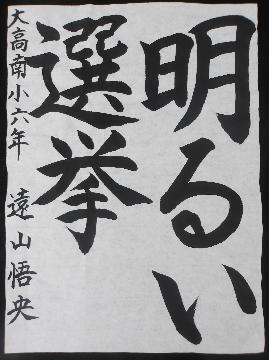 明るい
選挙
大高南小六年 遠山悟央